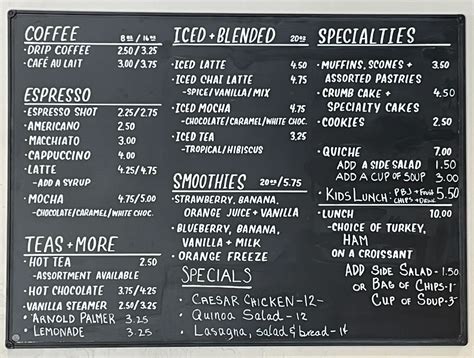 COFFEE 8oz/16oz
- DRIP COFFEE 2.50/3.25
- CAFÉ AU LAIT 3.00/3.75
ESPRESSO
- ESPRESSO SHOT 2.25/2.75
- AMERICANO 2.50
- MACCHIATO 3.00
- CAPPUCCINO 4.00
- LATTE 4.25/4.75
- ADD A SYRUP
- MOCHA 4.75/5.00
- CHOCOLATE/CARAMEL/WHITE CHOC.
TEAS + MORE
- HOT TEA 2.50
- ASSORTMENT AVAILABLE
- HOT CHOCOLATE 3.25/4.25
- VANILLA STEAMER 2.50/3.00
- ARNOLD PALMER 3.25
- LEMONADE 3.25
ICED + BLENDED 20oz
- ICED LATTE 4.50
- ICED CHAI LATTE 4.75
- SPICE/VANILLA/MIX
- ICED MOCHA 4.75
- CHOCOLATE/CARAMEL/WHITE CHOC.
- ICED TEA 3.25
- TROPICAL/HIBISCUS
SMOOTHIES 20oz/5.75
- STRAWBERRY, BANANA,
ORANGE JUICE + VANILLA
- BLUEBERRY, BANANA,
VANILLA + MILK
- ORANGE FREEZE
SPECIALS
- CAESAR CHICKEN -12-
- Quinoa Salad - 12
- Lasagna, salad & bread -
SPECIALTIES
- MUFFINS, SCONES + 3.50
ASSORTED PASTRIES
- CRUMB CAKE + 4.50
SPECIALTY CAKES
- COOKIES 2.50
- QUICHE 7.00
ADD A SIDE SALAD 1.50
ADD A CUP OF SOUP 3
- KIDS LUNCH: PBJ + Fruit 5.50
CHIPS + DRINK
- LUNCH 10.00
- CHOICE OF TURKEY,
HAM
ON A CROISSANT
ADD SIDE SALAD - 1.50
OR BAG OF CHIPS - 1
CUP OF SOUP - 3